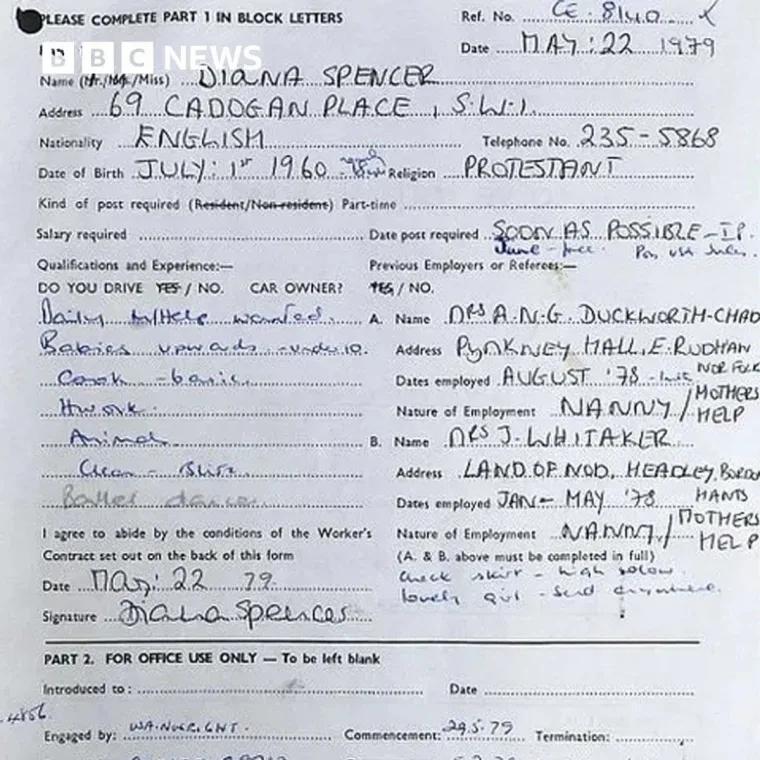 PLEASE COMPLETE PART 1 IN BLOCK LETTERS
Ref. No. CE. 8140
BBC NEWS
Date MAY: 22 1979
Name (Mr./Mrs./Miss) DIANA SPENCER
Address 69 CADOGAN PLACE, S.W.1.
Nationality ENGLISH Telephone No. 235-5868
Date of Birth JULY: 1st 1960 Religion PROTESTANT
Kind of post required (Resident/Non-resident) Part-time
Salary required Date post required SOON AS POSSIBLE
June - free.
Qualifications and Experience:— Previous Employers or Referees:—
DO YOU DRIVE YES / NO. CAR OWNER? YES / NO.
Daily M/Help wanted. A. Name MRS A.N.G. DUCKWORTH-CHAD
Babies upwards - under 10. Address PYNKNEY HALL, E. RUDHAM
NORFOLK
Cook - basic. Dates employed AUGUST '78
Hwork. Nature of Employment NANNY / MOTHERS HELP
Animals B. Name MRS J. WHITAKER
Clean - Address LAND OF NOD, HEADLEY, BORDON
HANTS
Ballet dancer Dates employed JAN - MAY '78
I agree to abide by the conditions of the Worker's Nature of Employment NANNY / MOTHERS HELP
Contract set out on the back of this form (A. & B. above must be completed in full)
Date May: 22 79. check skirt - high
Signature Diana Spencer lovely girl - send anywhere.
PART 2. FOR OFFICE USE ONLY — To be left blank
Introduced to: Date
Engaged by: Commencement: 29.5.79 Termination: